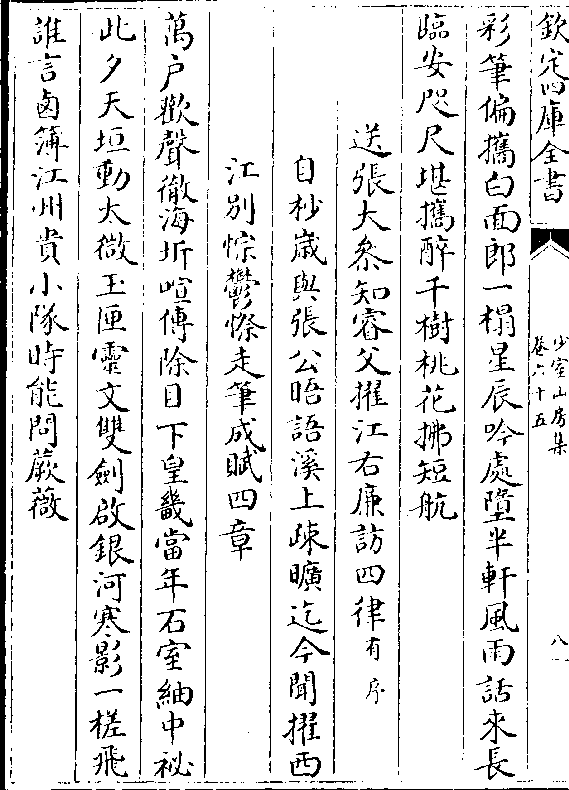 欽定四庫全書
少室山房集
卷六十五
八
彩筆偏攜白面郎一榻星辰吟處墮半軒風雨話來長
臨安咫尺堪攜醉千樹桃花拂短航
送張大參知睿父擢江右廉訪四律有序
自杪歲與張公晤語溪上疎曠迄今聞擢西
江別悰鬱𢠢走筆成賦四章
萬户歡聲徹海圻喧傳除目下皇畿當年石室紬中祕
此夕天垣動太微玉匣靈文雙劍啟銀河寒影一槎飛
誰言鹵簿江州貴小隊時能問蕨薇